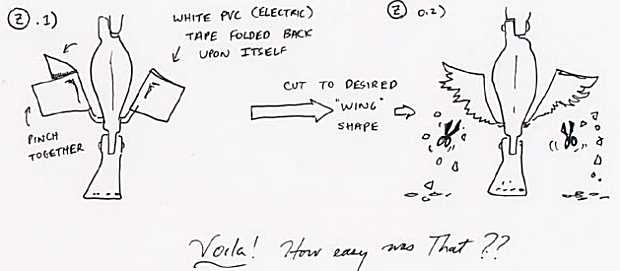 Z .1)
WHITE PVC (ELECTRIC)
TAPE FOLDED BACK
UPON ITSELF
PINCH
TOGETHER
CUT TO DESIRED
"WING"
SHAPE
Z 0.2)
Voila! How easy was That ??